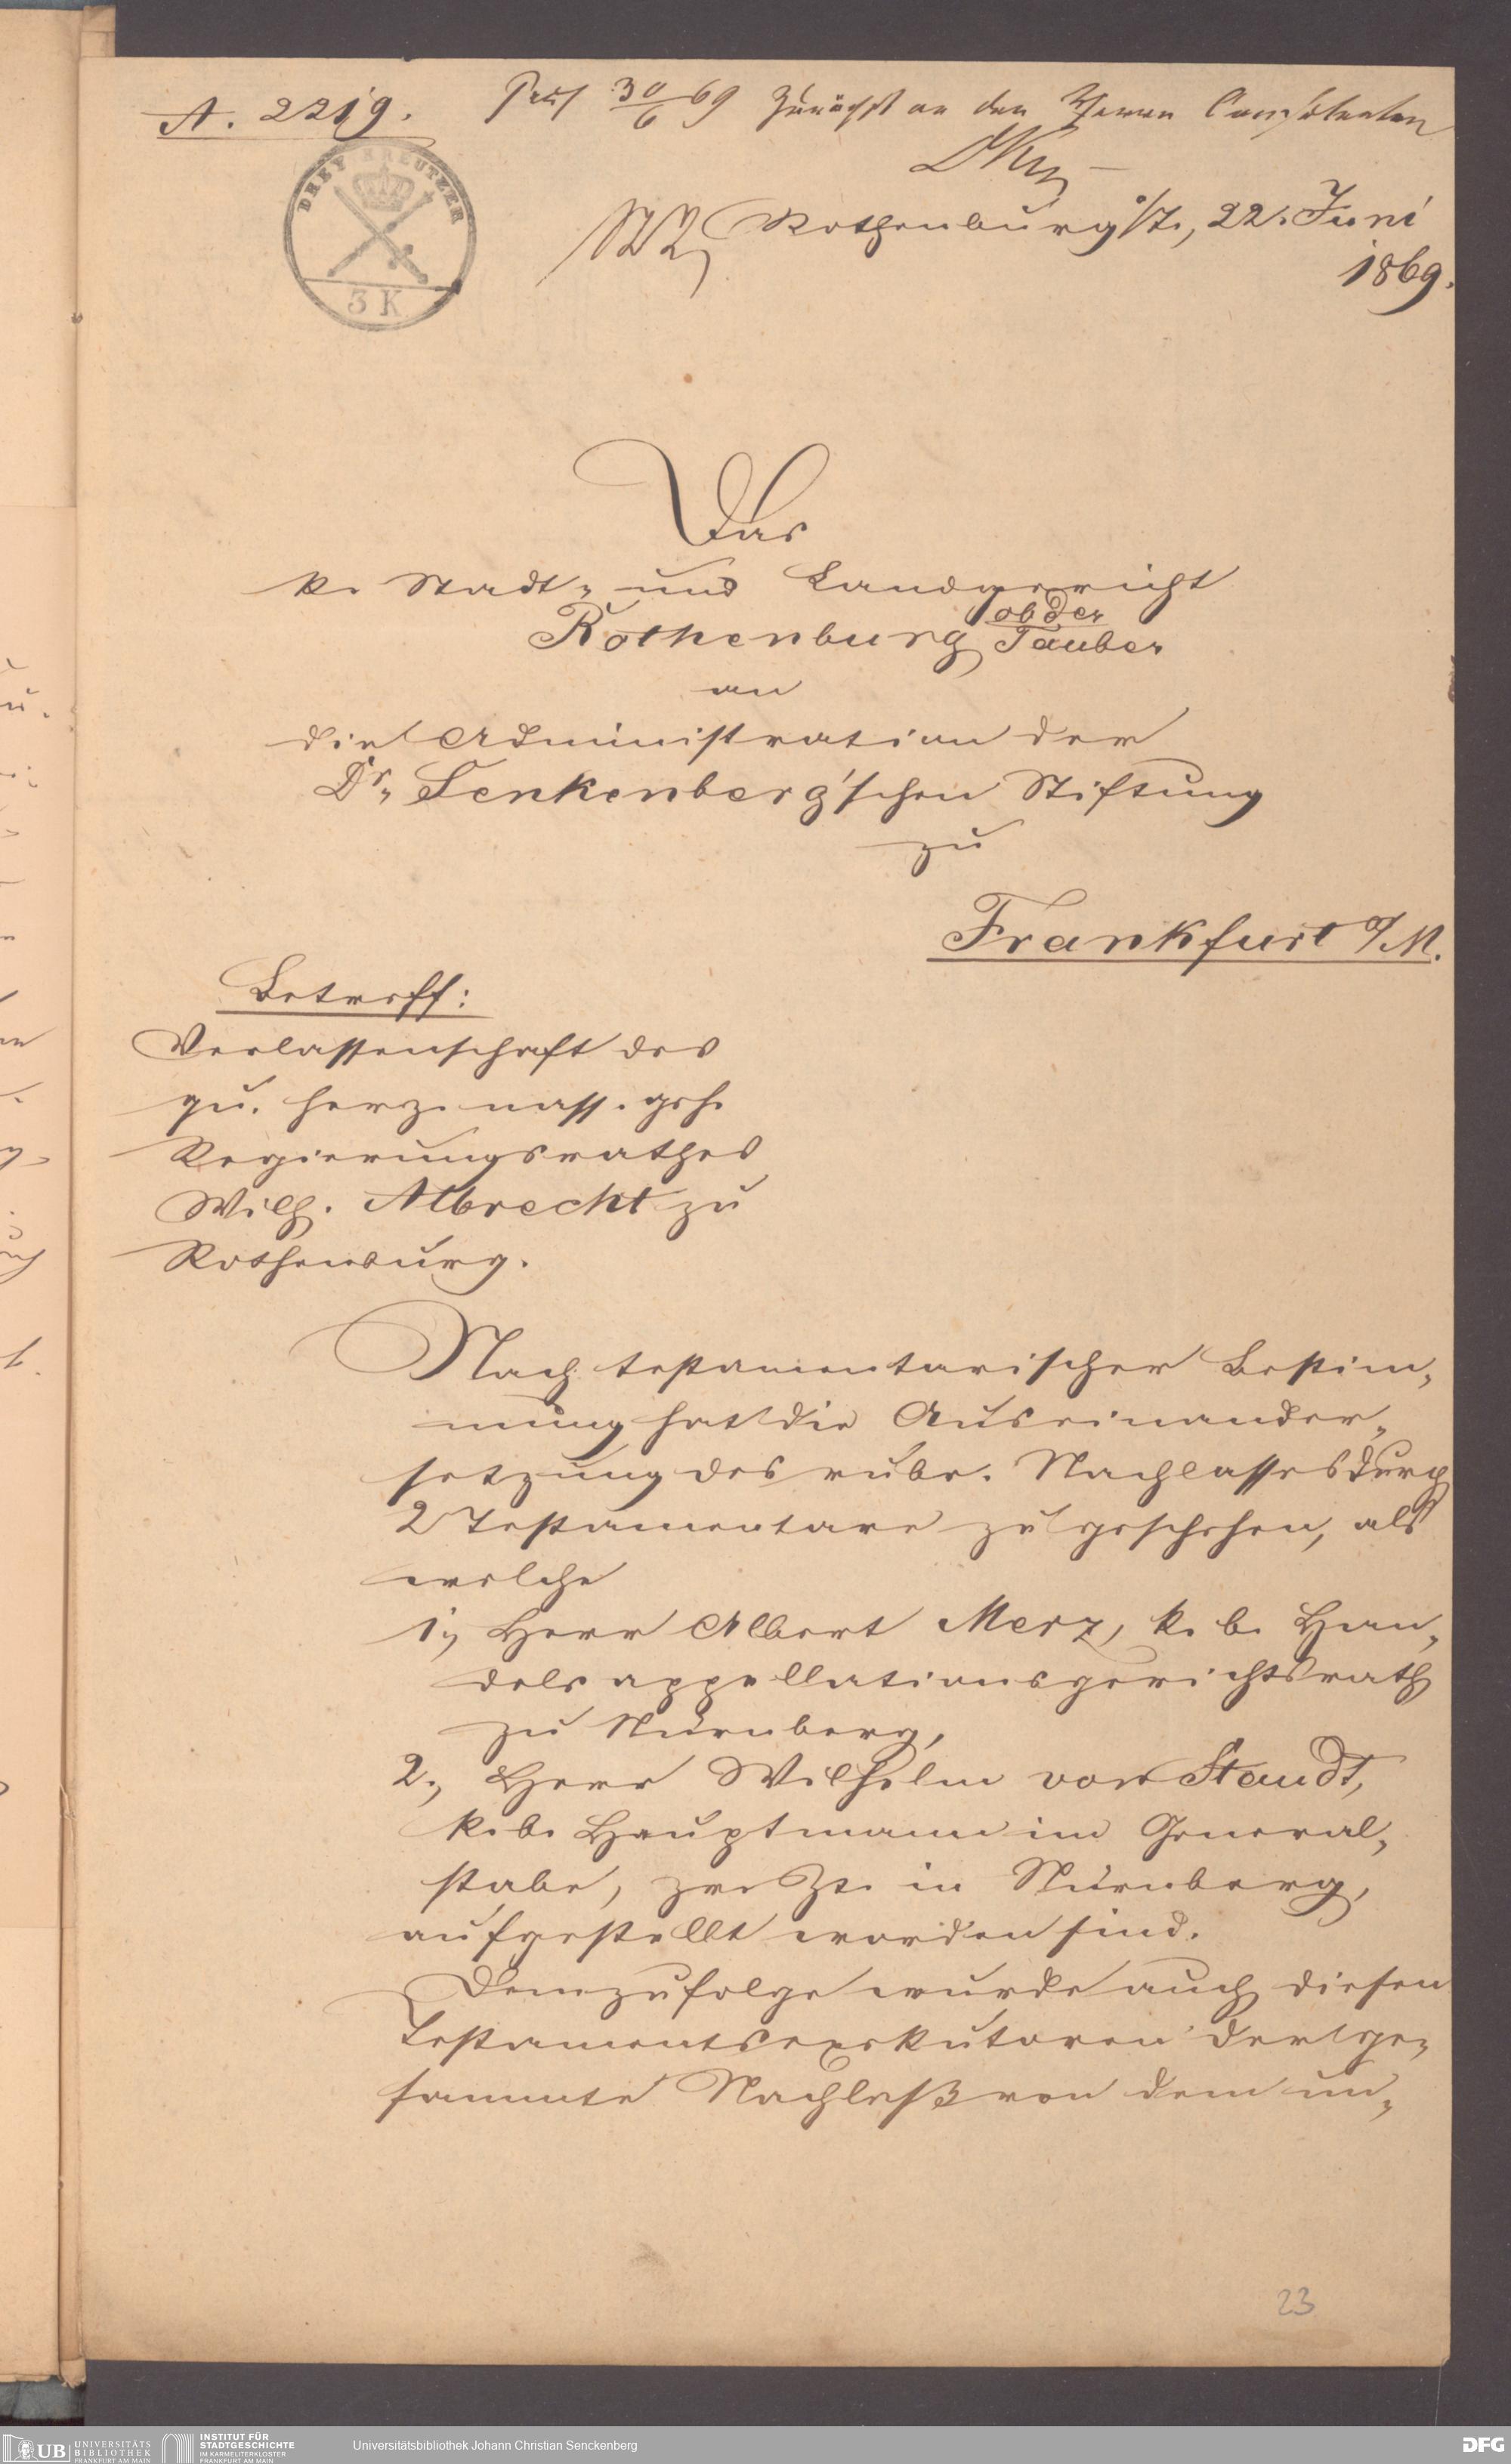 A. 2219.
Präs 30/6 69 Zunächst an den Herrn Consulenten
Rothenburg o/T., 22. Juni
1869.
DREY KREUTZER
3 K
Das
k. Stadt- und Landgericht
Rothenburg ob der Tauber
an
die Administration der
Dr. Senkenberg'schen Stiftung
zu
Frankfurt a/M.
Betreff:
Verlassenschaft des
qu. herz. nass. geh.
Regierungsrathes
Wilh. Albrecht zu
Rothenburg.
Nach testamentarischer Bestim-
mung hat die Auseinander-
setzung des rubr. Nachlasses durch
2 Testamentare zu geschehen, als
welche
1., Herr Albert Merz, k. b. Han-
delsappellationsgerichtsrath
zu Nürnberg,
2., Herr Wilhelm von Staudt,
k. b. Hauptmann im General-
stabe, zur Zt. in Nürnberg,
aufgestellt worden sind.
Demzufolge wurde auch diesen
Testamentsexekutoren der ge-
sammte Nachlaß von dem un-
23
UB UNIVERSITÄTS
BIBLIOTHEK
FRANKFURT AM MAIN
INSTITUT FÜR
STADTGESCHICHTE
IM KARMELITERKLOSTER
FRANKFURT AM MAIN
Universitätsbibliothek Johann Christian Senckenberg
DFG